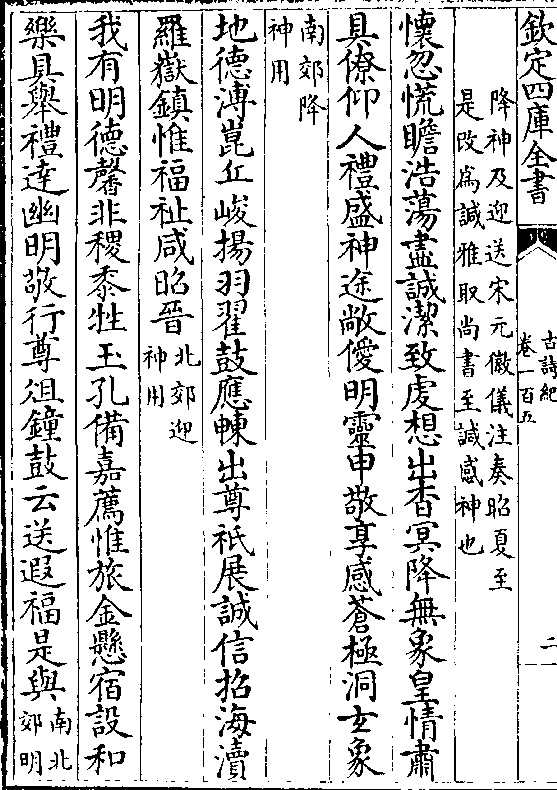 欽定四庫全書
古詩紀
卷一百五
二
降神及迎送宋元徽儀注奏昭夏至
是改爲諴雅取尚書至諴感神也
懷忽慌瞻浩蕩盡誠潔致虔想出杳冥降無象皇情肅
具僚仰人禮盛神途敞僾明靈申敬享感蒼極洞𤣥象
南郊降
神用
地德溥崑丘峻揚羽翟鼓應朄出尊祗展誠信招海瀆
羅嶽鎮惟福祉咸昭晉
北郊迎
神用
我有明德馨非稷黍牲玉孔備嘉薦惟旅金懸宿設和
樂具舉禮達幽明敬行尊俎鐘鼓云送遐福是與
南北
郊明